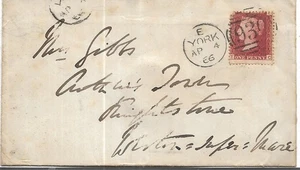 E
YORK
AP 4
66
ONE PENNY
Mrs Gibbs
Arthur's Town
Knightstone
Weston = Super = Mare